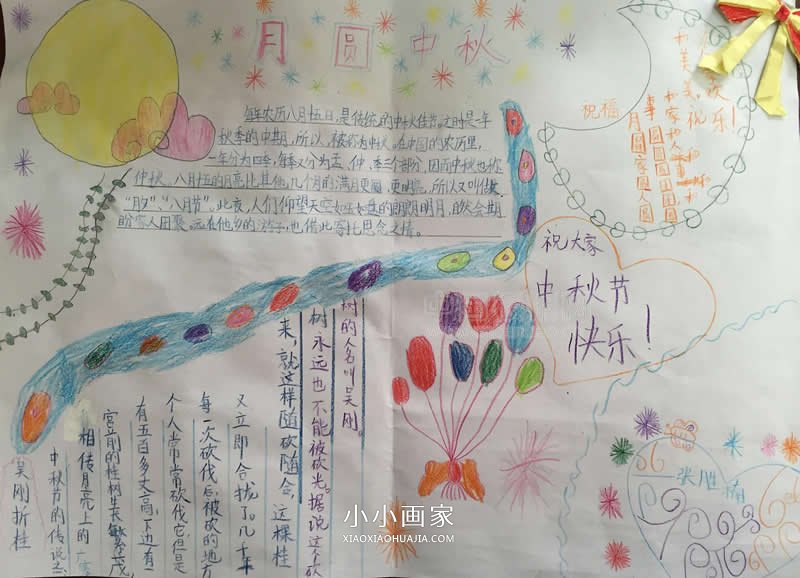 月圆中秋
每年农历八月十五日,是传统的中秋佳节。这时是一年
秋季的中期,所以,被称为中秋。在中国的农历里,
一年分为四季,每季又分为孟、仲、季三个部分,因而中秋也称
仲秋。八月十五的月亮比其他几个月的满月更圆,更明亮,所以又叫做
“月夕”“八月节”。此夜,人们仰望天空如玉如盘的朗朗明月,自然会期
盼家人团聚。远在他乡的游子,也借此寄托思念之情。
祝福
快乐!
事和家和人
月圆圆圆团圆
圆家圆人圆
祝大家
中秋节
快乐!
吴刚折桂
中秋节的传说之
相传月亮上的
宫前的桂树生长繁茂,
有五百多丈高,下边有一
个人常常砍伐它,但是
每一次砍伐后,被砍的地方
又立即合拢了。几千年
来,就这样随砍随合,这棵桂
树永远也不能被砍光。据说这个砍
树的人名叫吴刚。
小小画家
XIAOXIAOHUAJIA.COM